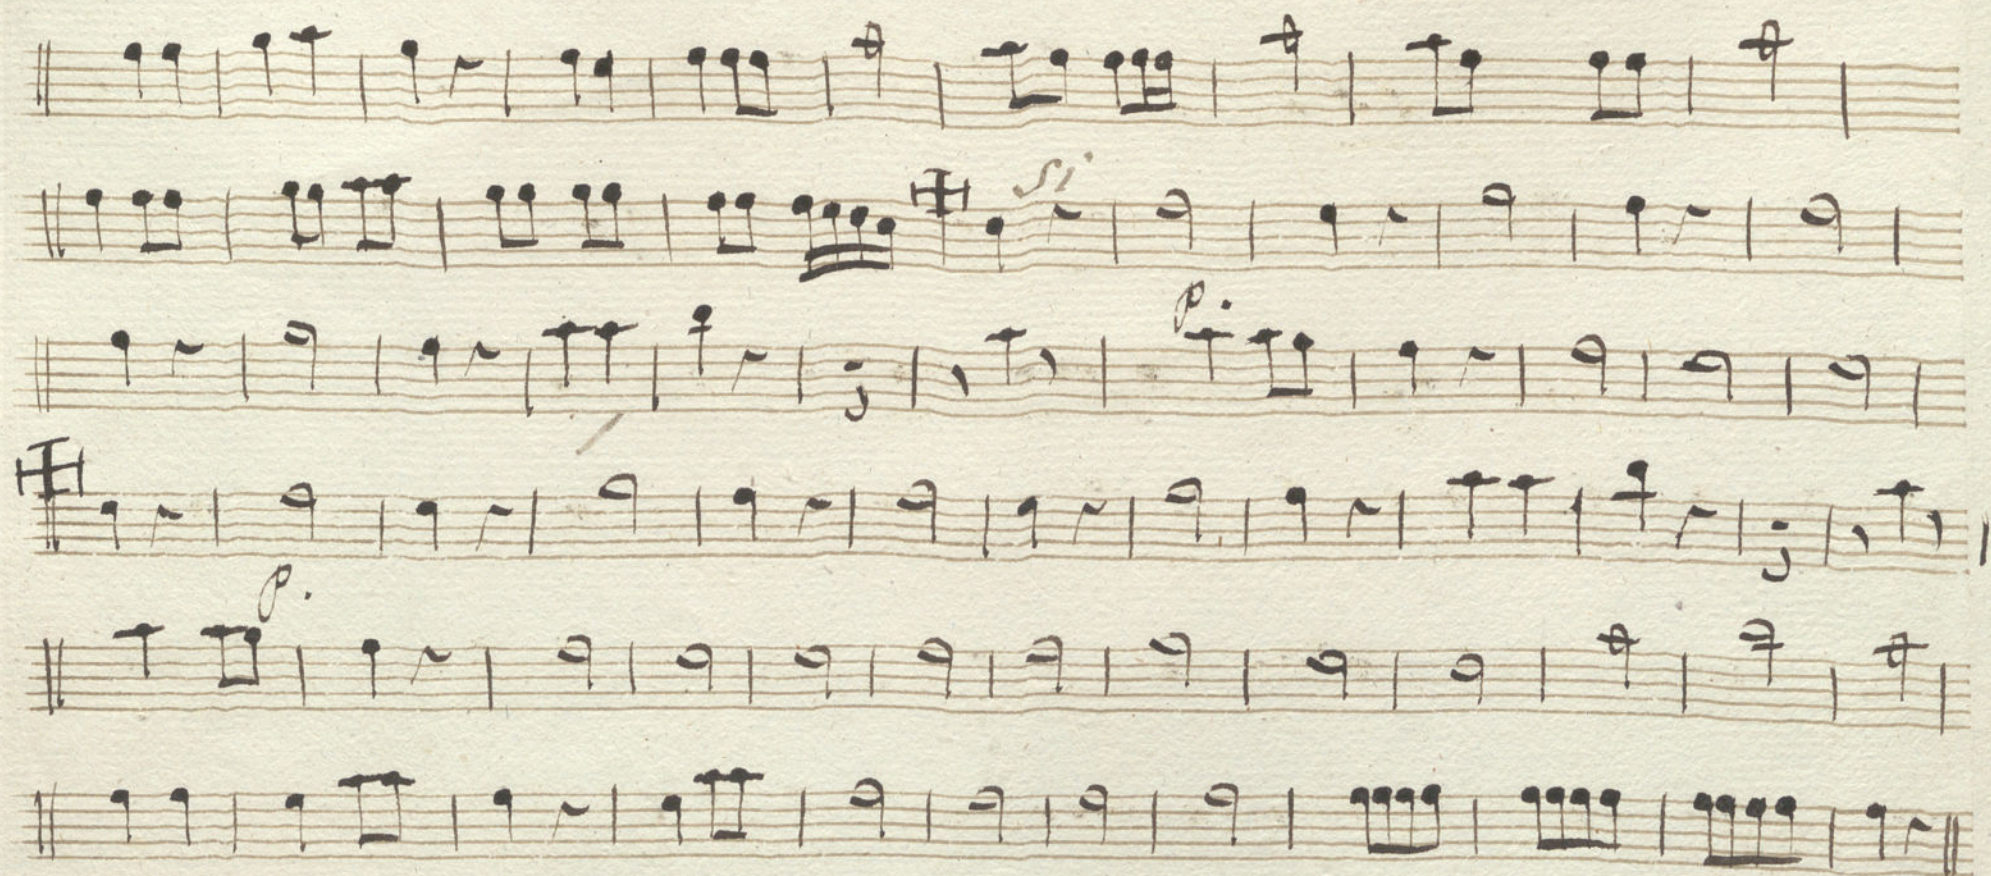 Si
p.
p.